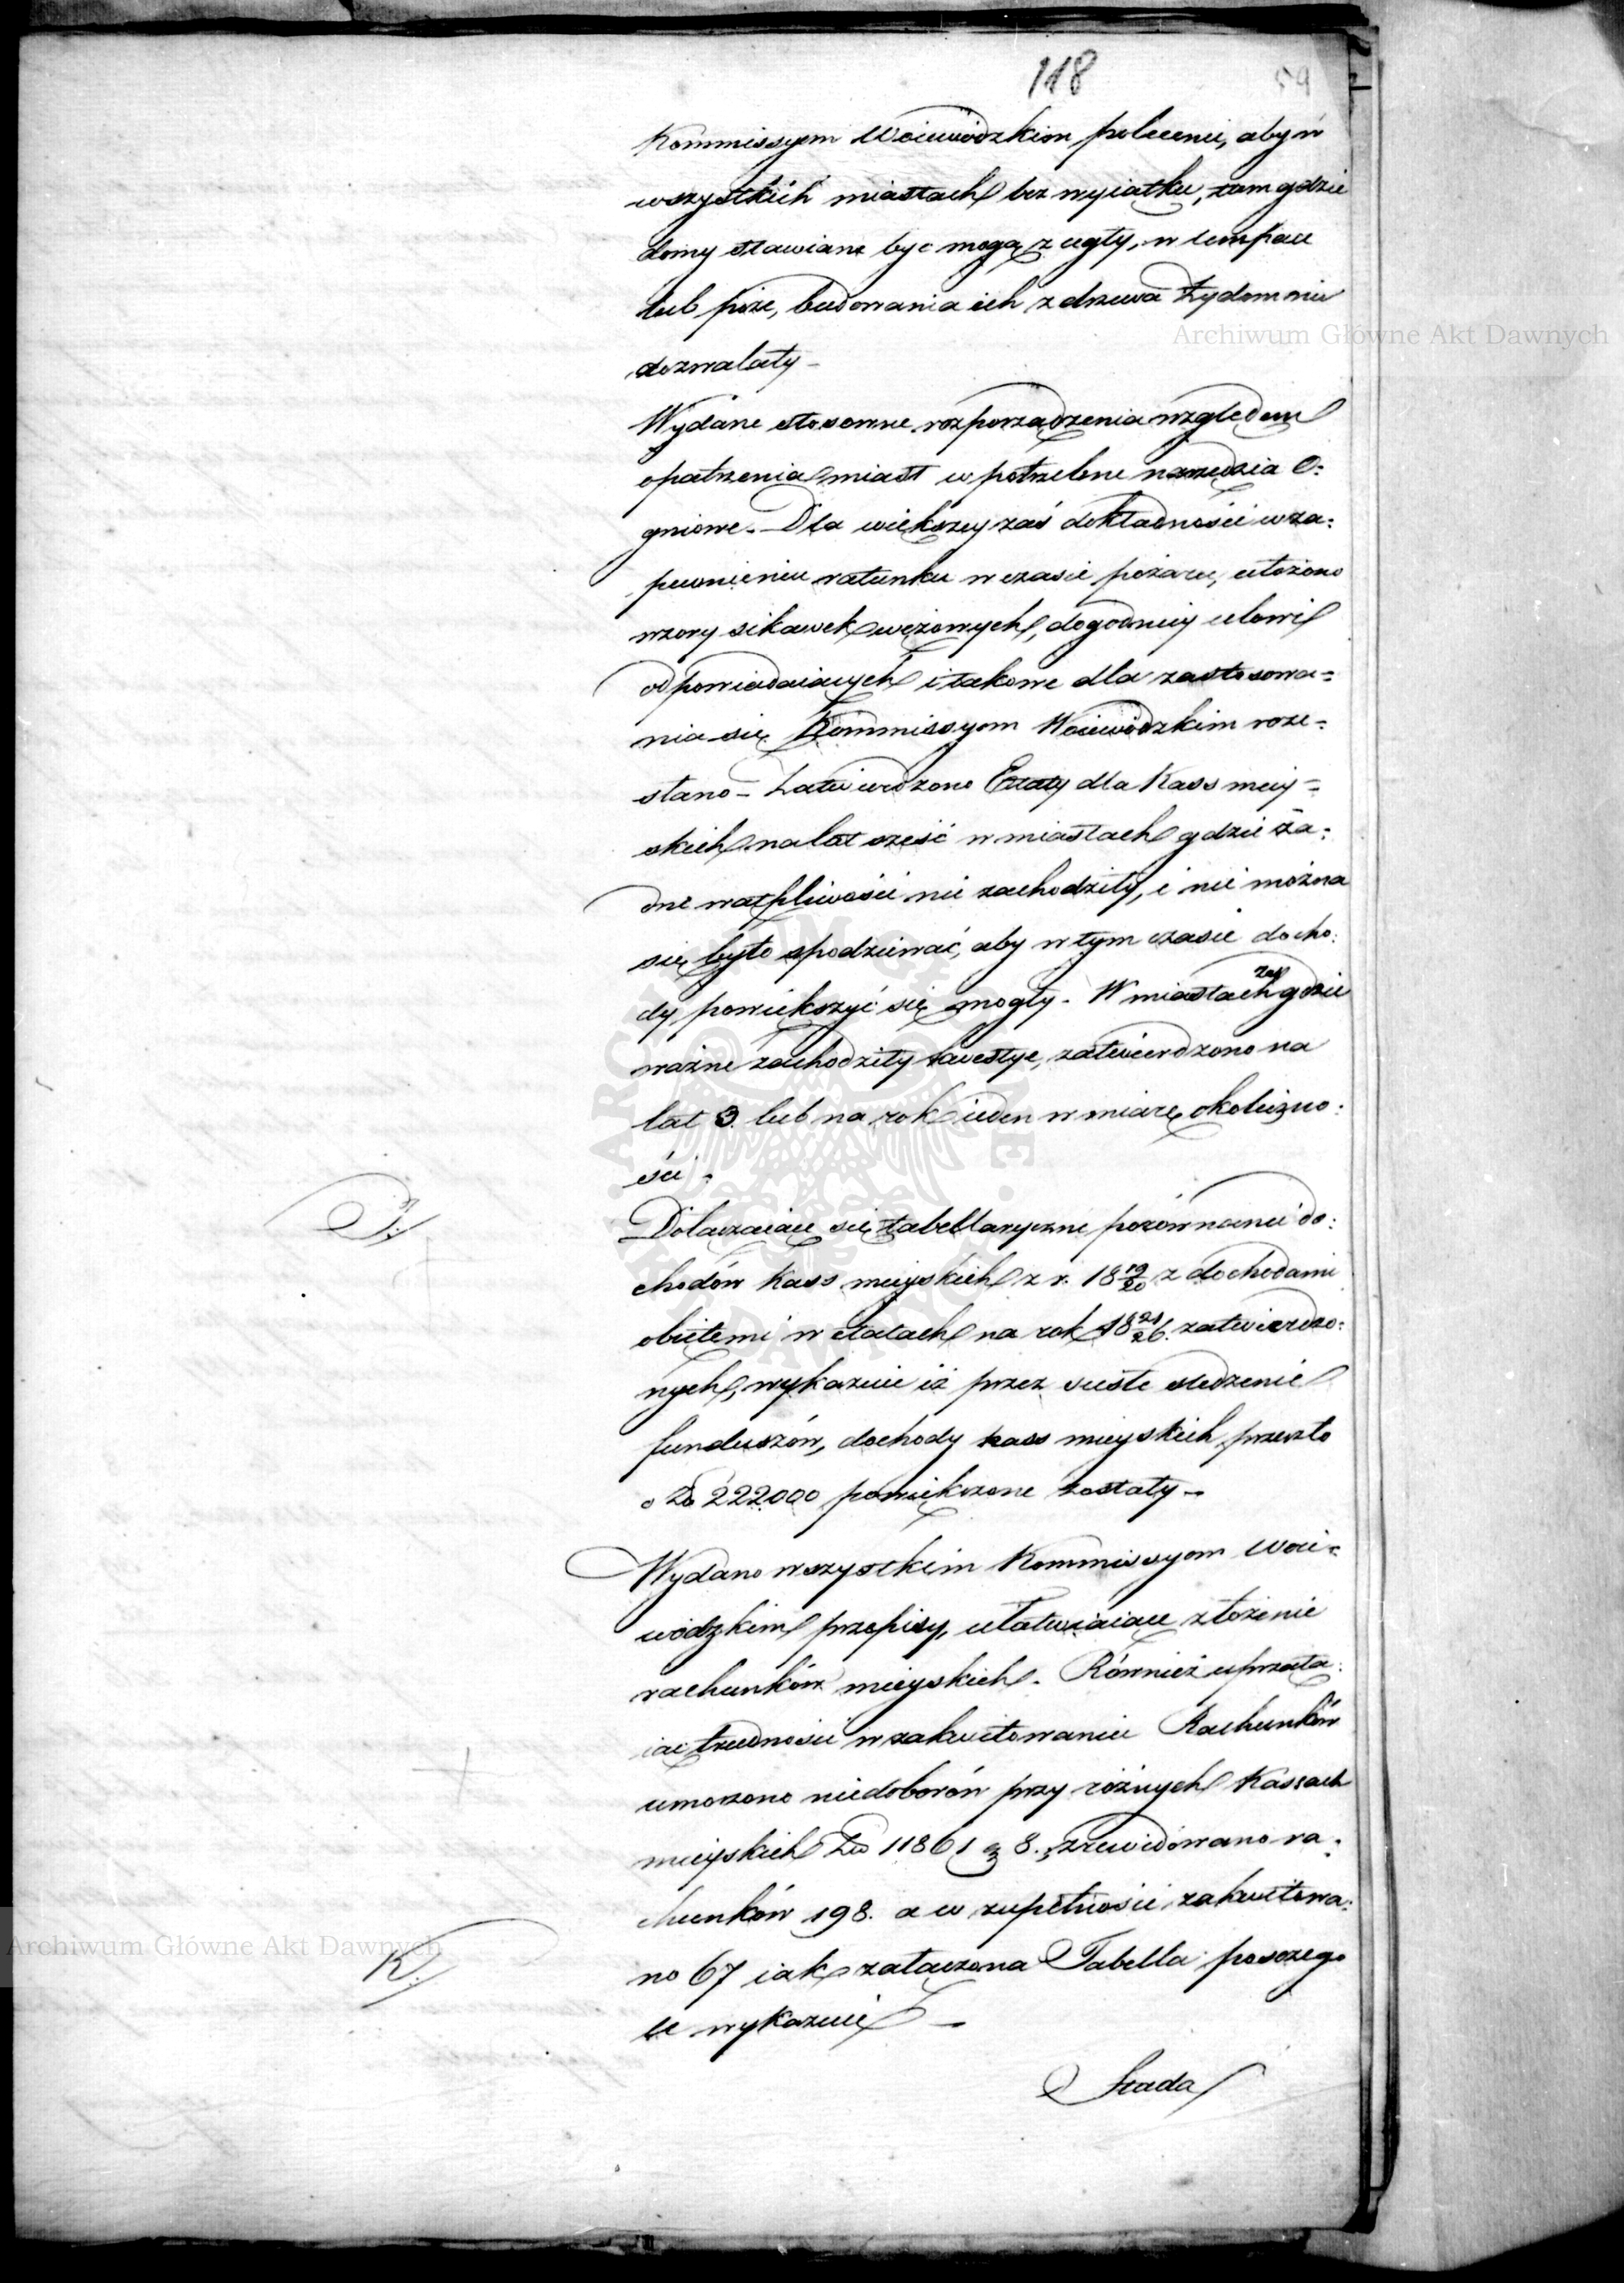 118
59
Kommissyom Woiewódzkim polecenie, aby w
wszystkich miastach bez wyiątku, tam gdzie
domy stawiane być mogą z cegły, w lempacz
lub pizé, budowania ich z drzewa Żydom nie
dozwalały –
Wydane stosowne rozporządzenia względem
opatrzenia miast w potrzebne narzędzia o:
gniowe. – Dla większey zaś dokładności w za:
pewnieniu ratunku w czasie pożaru, ułożono
wzory sikawek wężowych, dogodniey celowi
odpowiadaiących i takowe dla zastosowa=
nia się Kommissyom Woiewódzkim roze=
słano – Zatwierdzono Etaty dla Kass miey=
skich na lat sześć w miastach gdzie ża:
dne wątpliwości nie zachodziły, i nie można
się było spodziewać, aby w tym czasie docho:
dy powiększyć się mogły. W miastach zaś gdzie
ważne zachodziły kwestye, zatwierdzono na
lat 3. lub na rok ieden w miarę okoliczno:
ści –
J.
Dołączaiące się tabellaryczne porównanie do:
chodów Kass mieyskich z r. 18 19/20 z dochodami
obiętemi w etatach na rok 18 21/26. zatwierdzo:
nych, wykazuie iż przez ścisłe śledzenie
funduszów, dochody kass mieyskich przeszło
o Zł 222000 powiększone zostały –
Wydano wszystkim Kommissyom Woie=
wódzkim przepisy, ułatwiaiące złożenie
rachunków mieyskich. Również uprząta:
iąc trudności w zakwitowaniu Rachunków
umorzono niedoborów przy różnych Kassach
mieyskich Zł 11861 g 8. zrewidowano ra:
chunków 198. a w zupełności zakwitowa:
no 67 iak załączona Tabella poszczego
K.
le wykazuie –
Rada
Archiwum Główne Akt Dawnych
Archiwum Główne Akt Dawnych